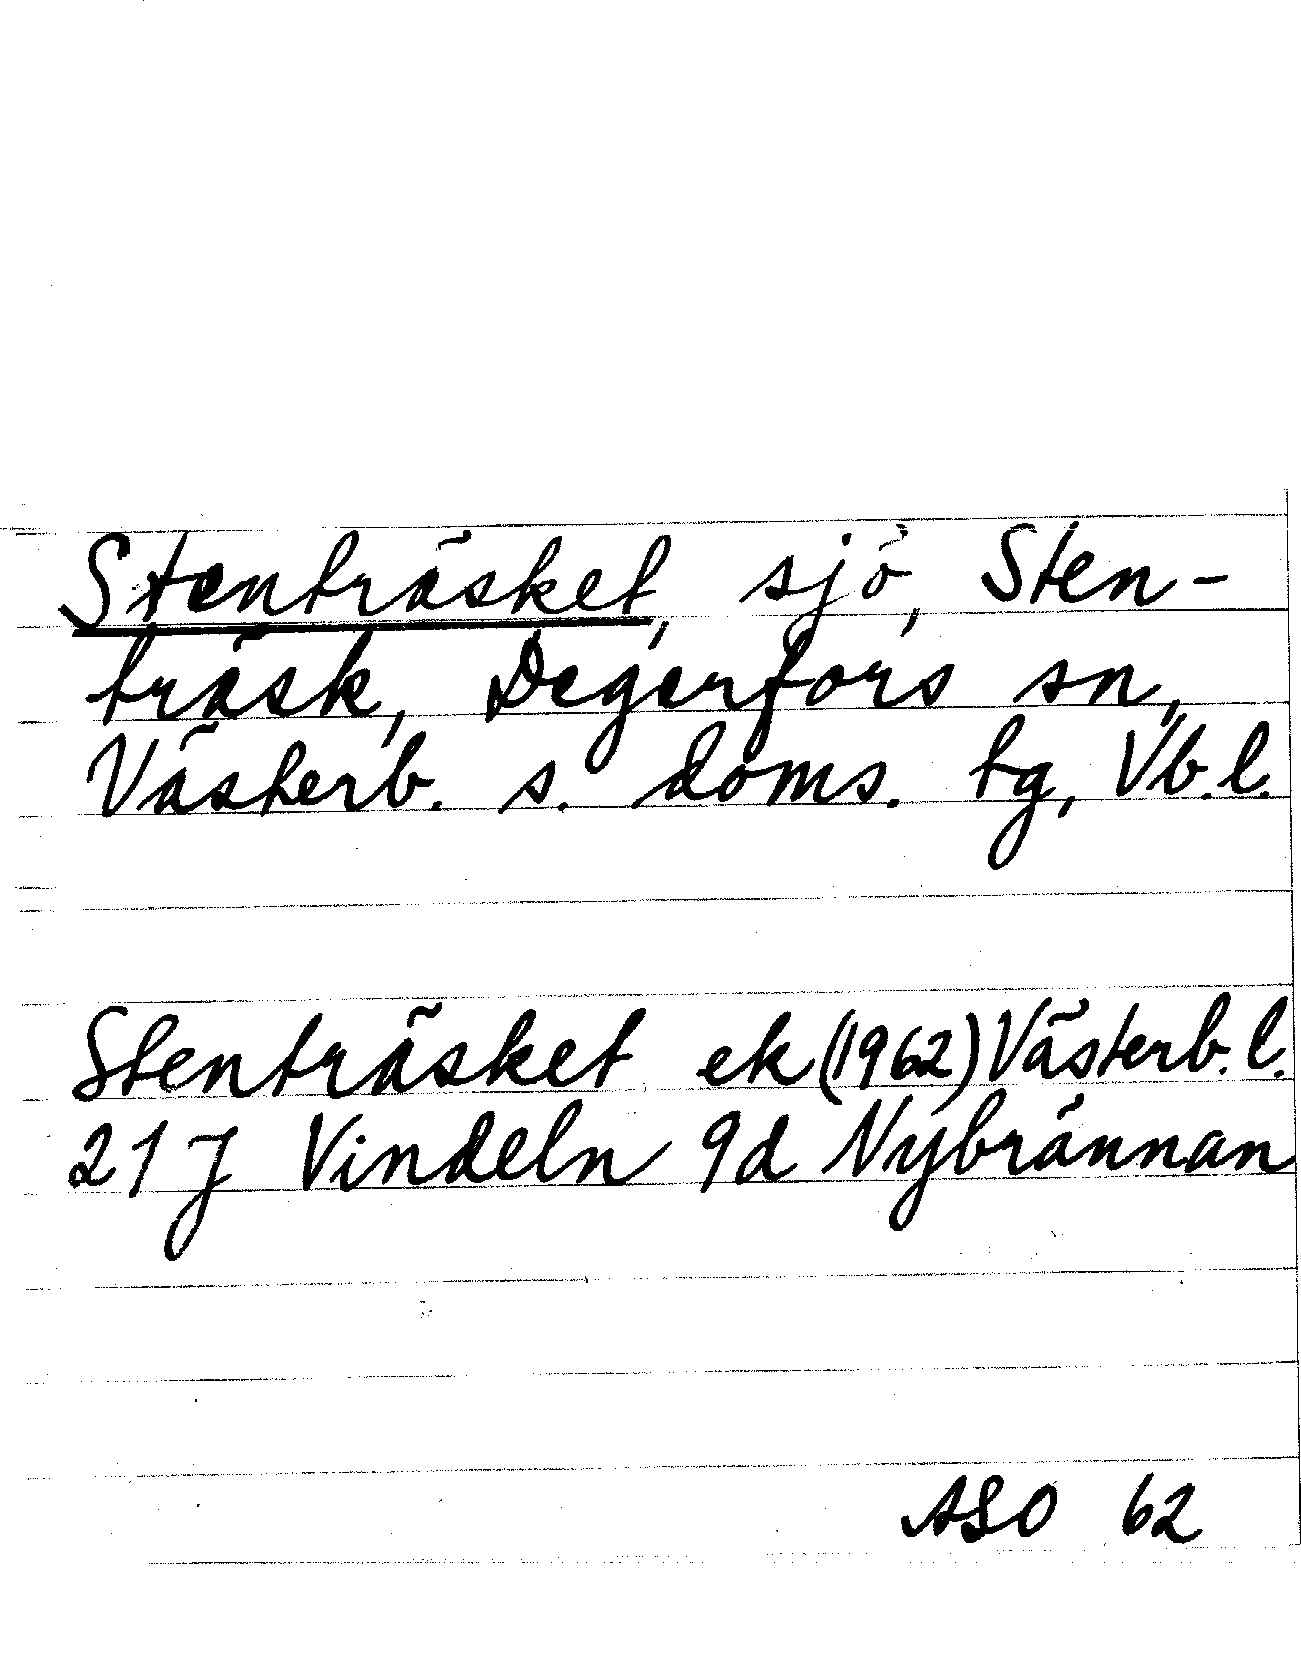 Stenträsket, sjö, Sten-
träsk, Degerfors sn,
Västerb. s. doms. tg, Vb.l.
Stenträsket ek (1962) Västerb.l.
21J Vindeln 9d Nybrännan
ASO 62